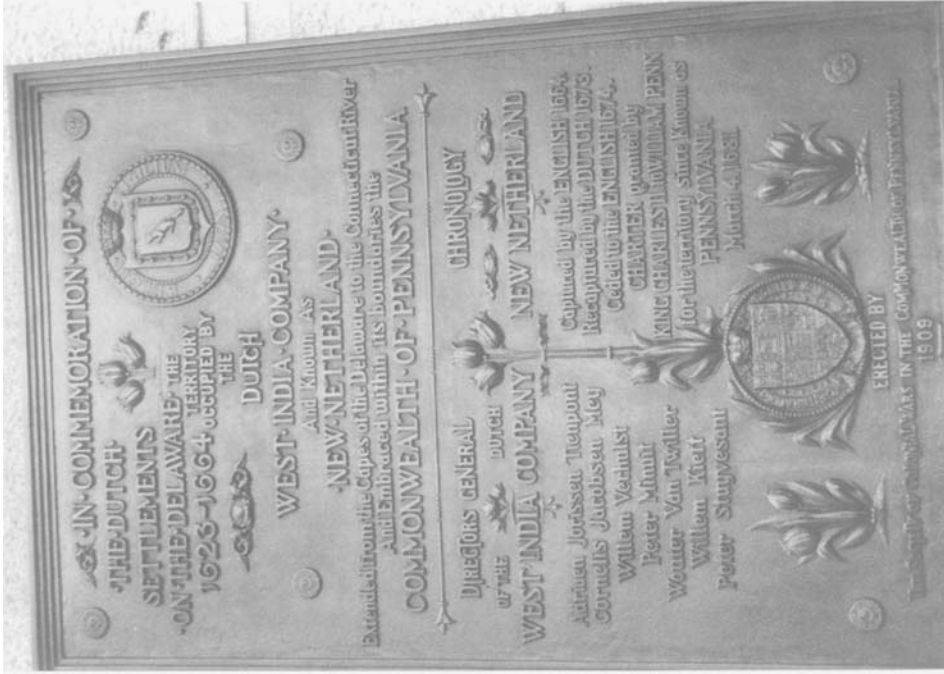 ·IN·COMMEMORATION·OF·
·THE·DUTCH·
SETTLEMENTS
·ON·THE·DELAWARE·THE
TERRITORY
1623-1664 OCCUPIED BY
THE
DUTCH
WEST·INDIA·COMPANY·
And Known As
·NEW·NETHERLAND·
Extended from the Capes of the Delaware to the Connecticut River
And Embraced within its boundaries the
COMMONWEALTH·OF·PENNSYLVANIA
DIRECTORS GENERAL
OF THE DUTCH
WEST INDIA COMPANY
Adriaen Jorissen Tienpont
Cornelis Jacobsen Mey
Willem Verhulst
Peter Minuit
Wouter Van Twiller
Willem Kieft
Peter Stuyvesant
CHRONOLOGY
NEW NETHERLAND
Captured by the ENGLISH 1664.
Recaptured by the DUTCH 1673.
Ceded to the ENGLISH 1674.
CHARTER granted by
KING CHARLES II to WILLIAM PENN
for the territory since Known as
PENNSYLVANIA
March.4.1681
ERECTED BY
The Daughters of COMMONWEALTH OF PENNSYLVANIA
1909